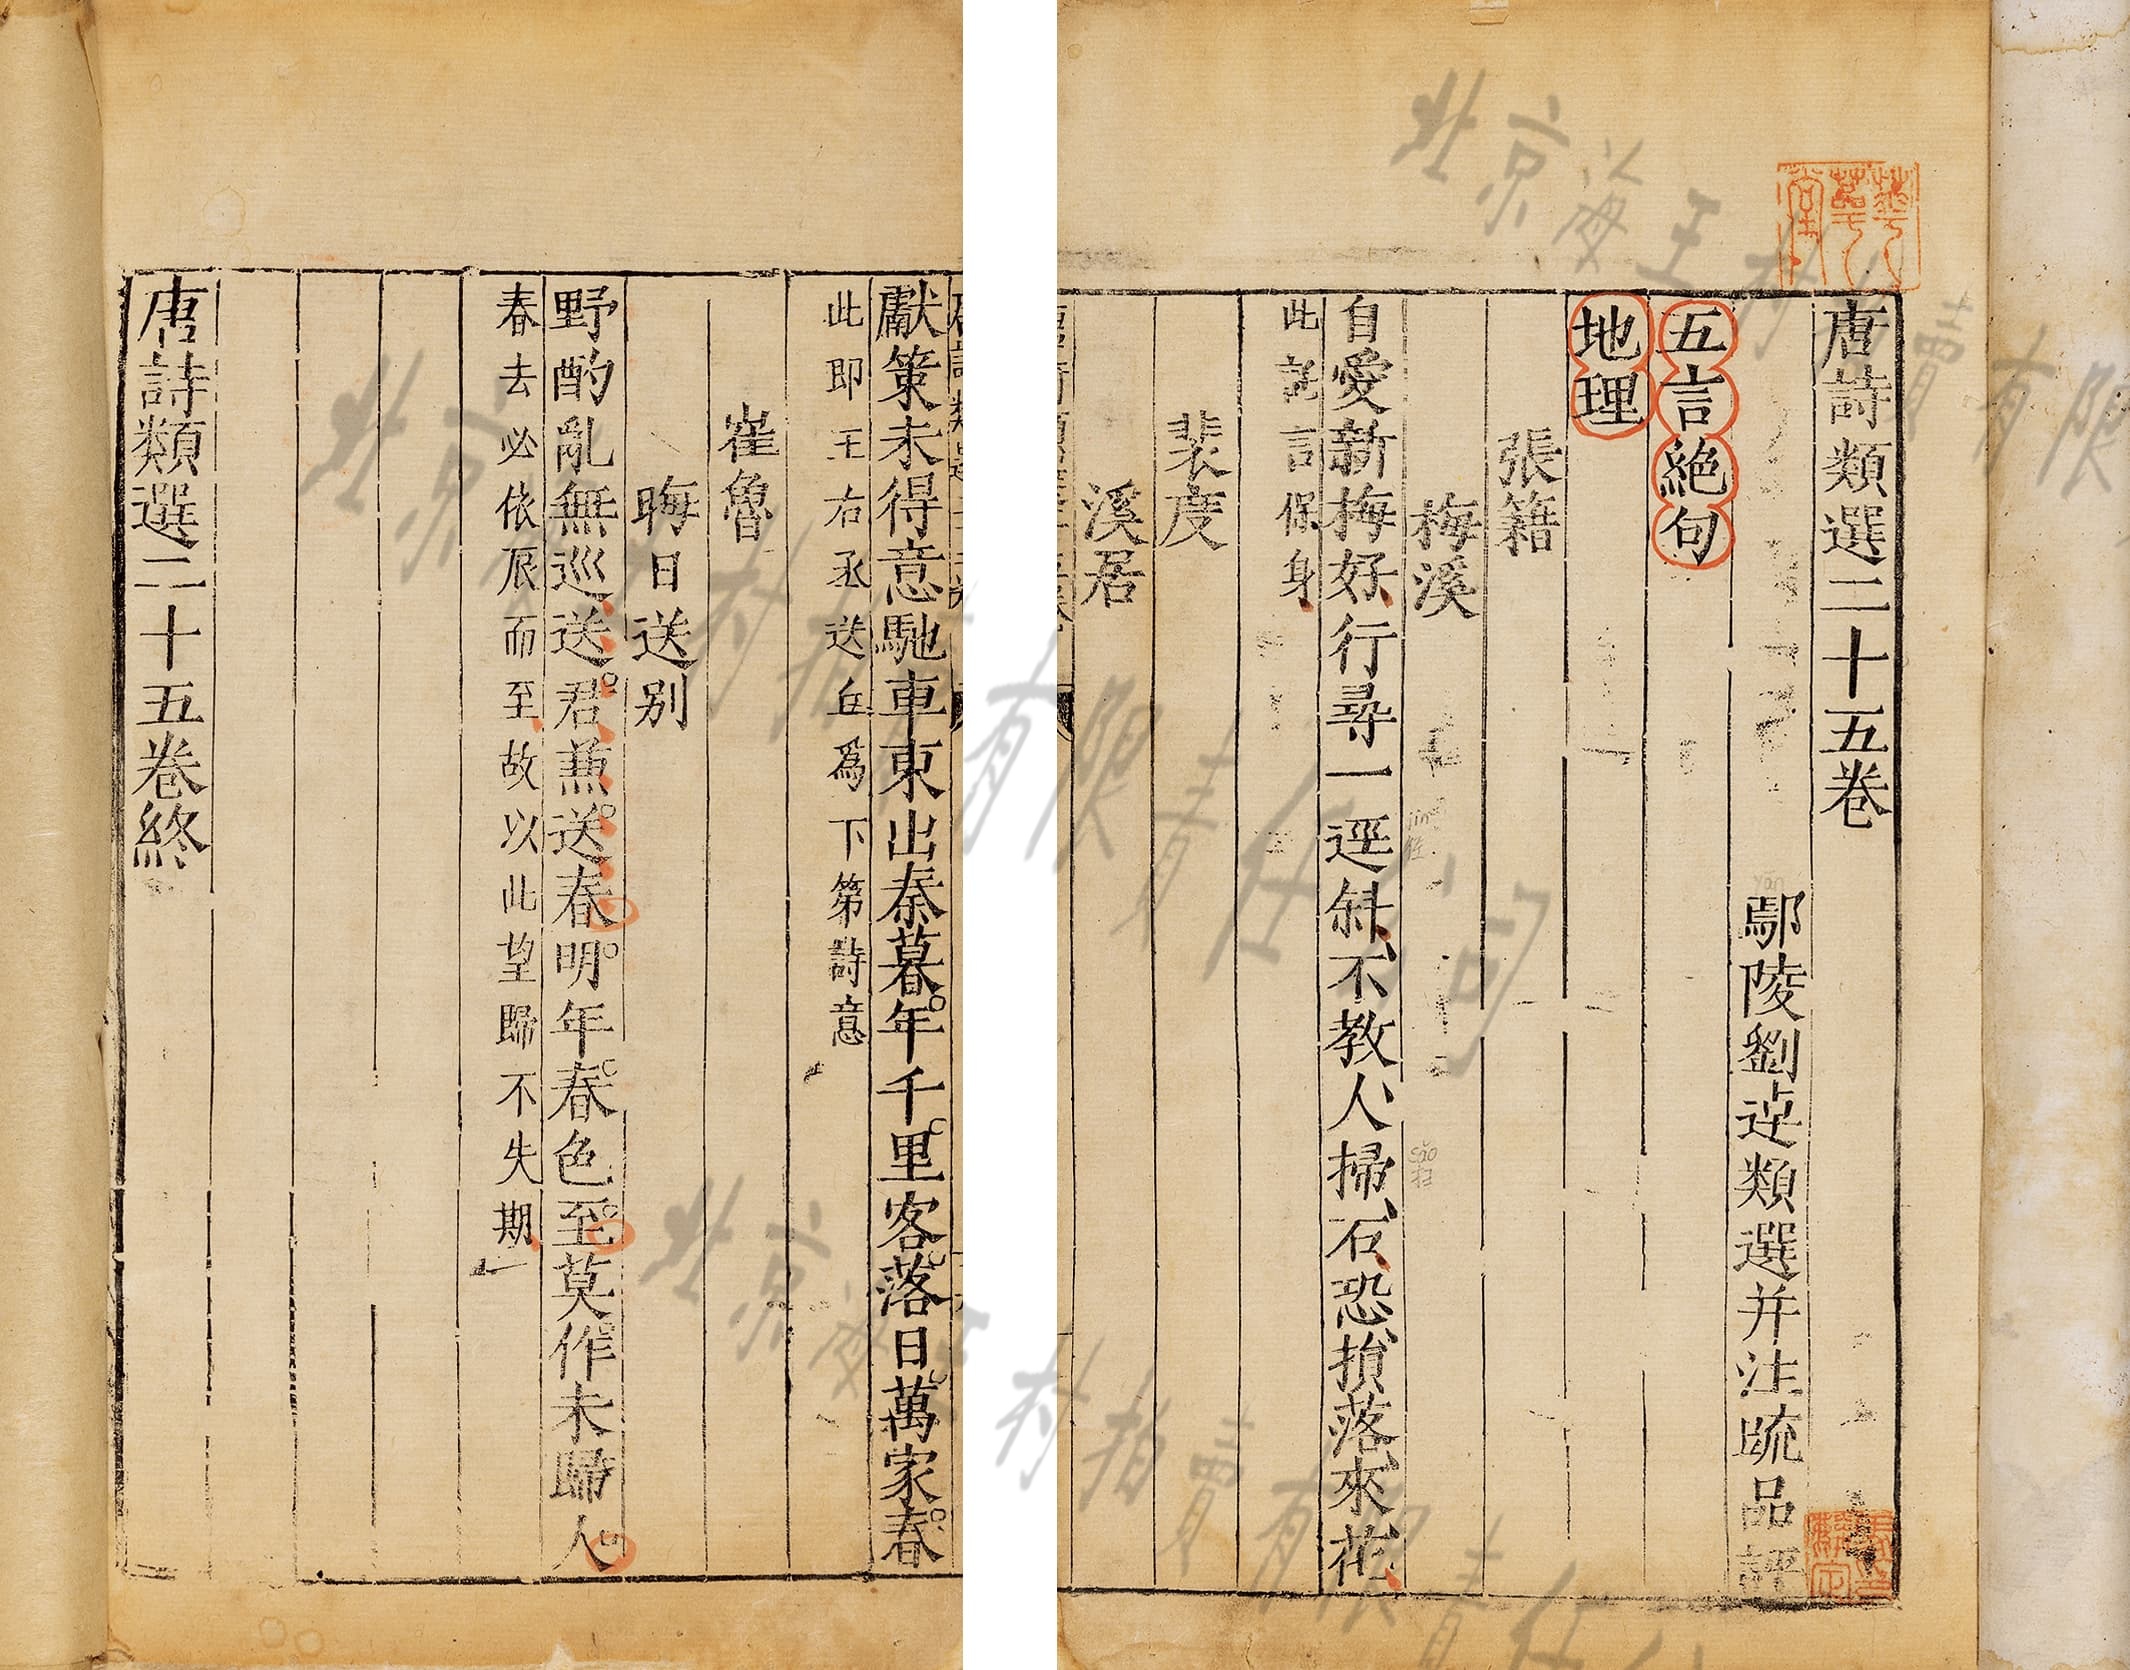 唐詩類選二十五巻
鄢陵劉迃類選并注䟽品評
五言絶句
地理
張籍
梅溪
自愛新梅好行尋一逕斜不教人掃石恐損落來花
此託言保身
裴度
溪居
獻策未得意馳車東出秦暮年千里客落日萬家春
此即王右丞送丘爲下第詩意
崔魯
晦日送别
野酌亂無巡送君兼送春明年春色至莫作未歸人
春去必依辰而至故以此望歸不失期
唐詩類選二十五巻終
北京海王村拍賣有限責任公司